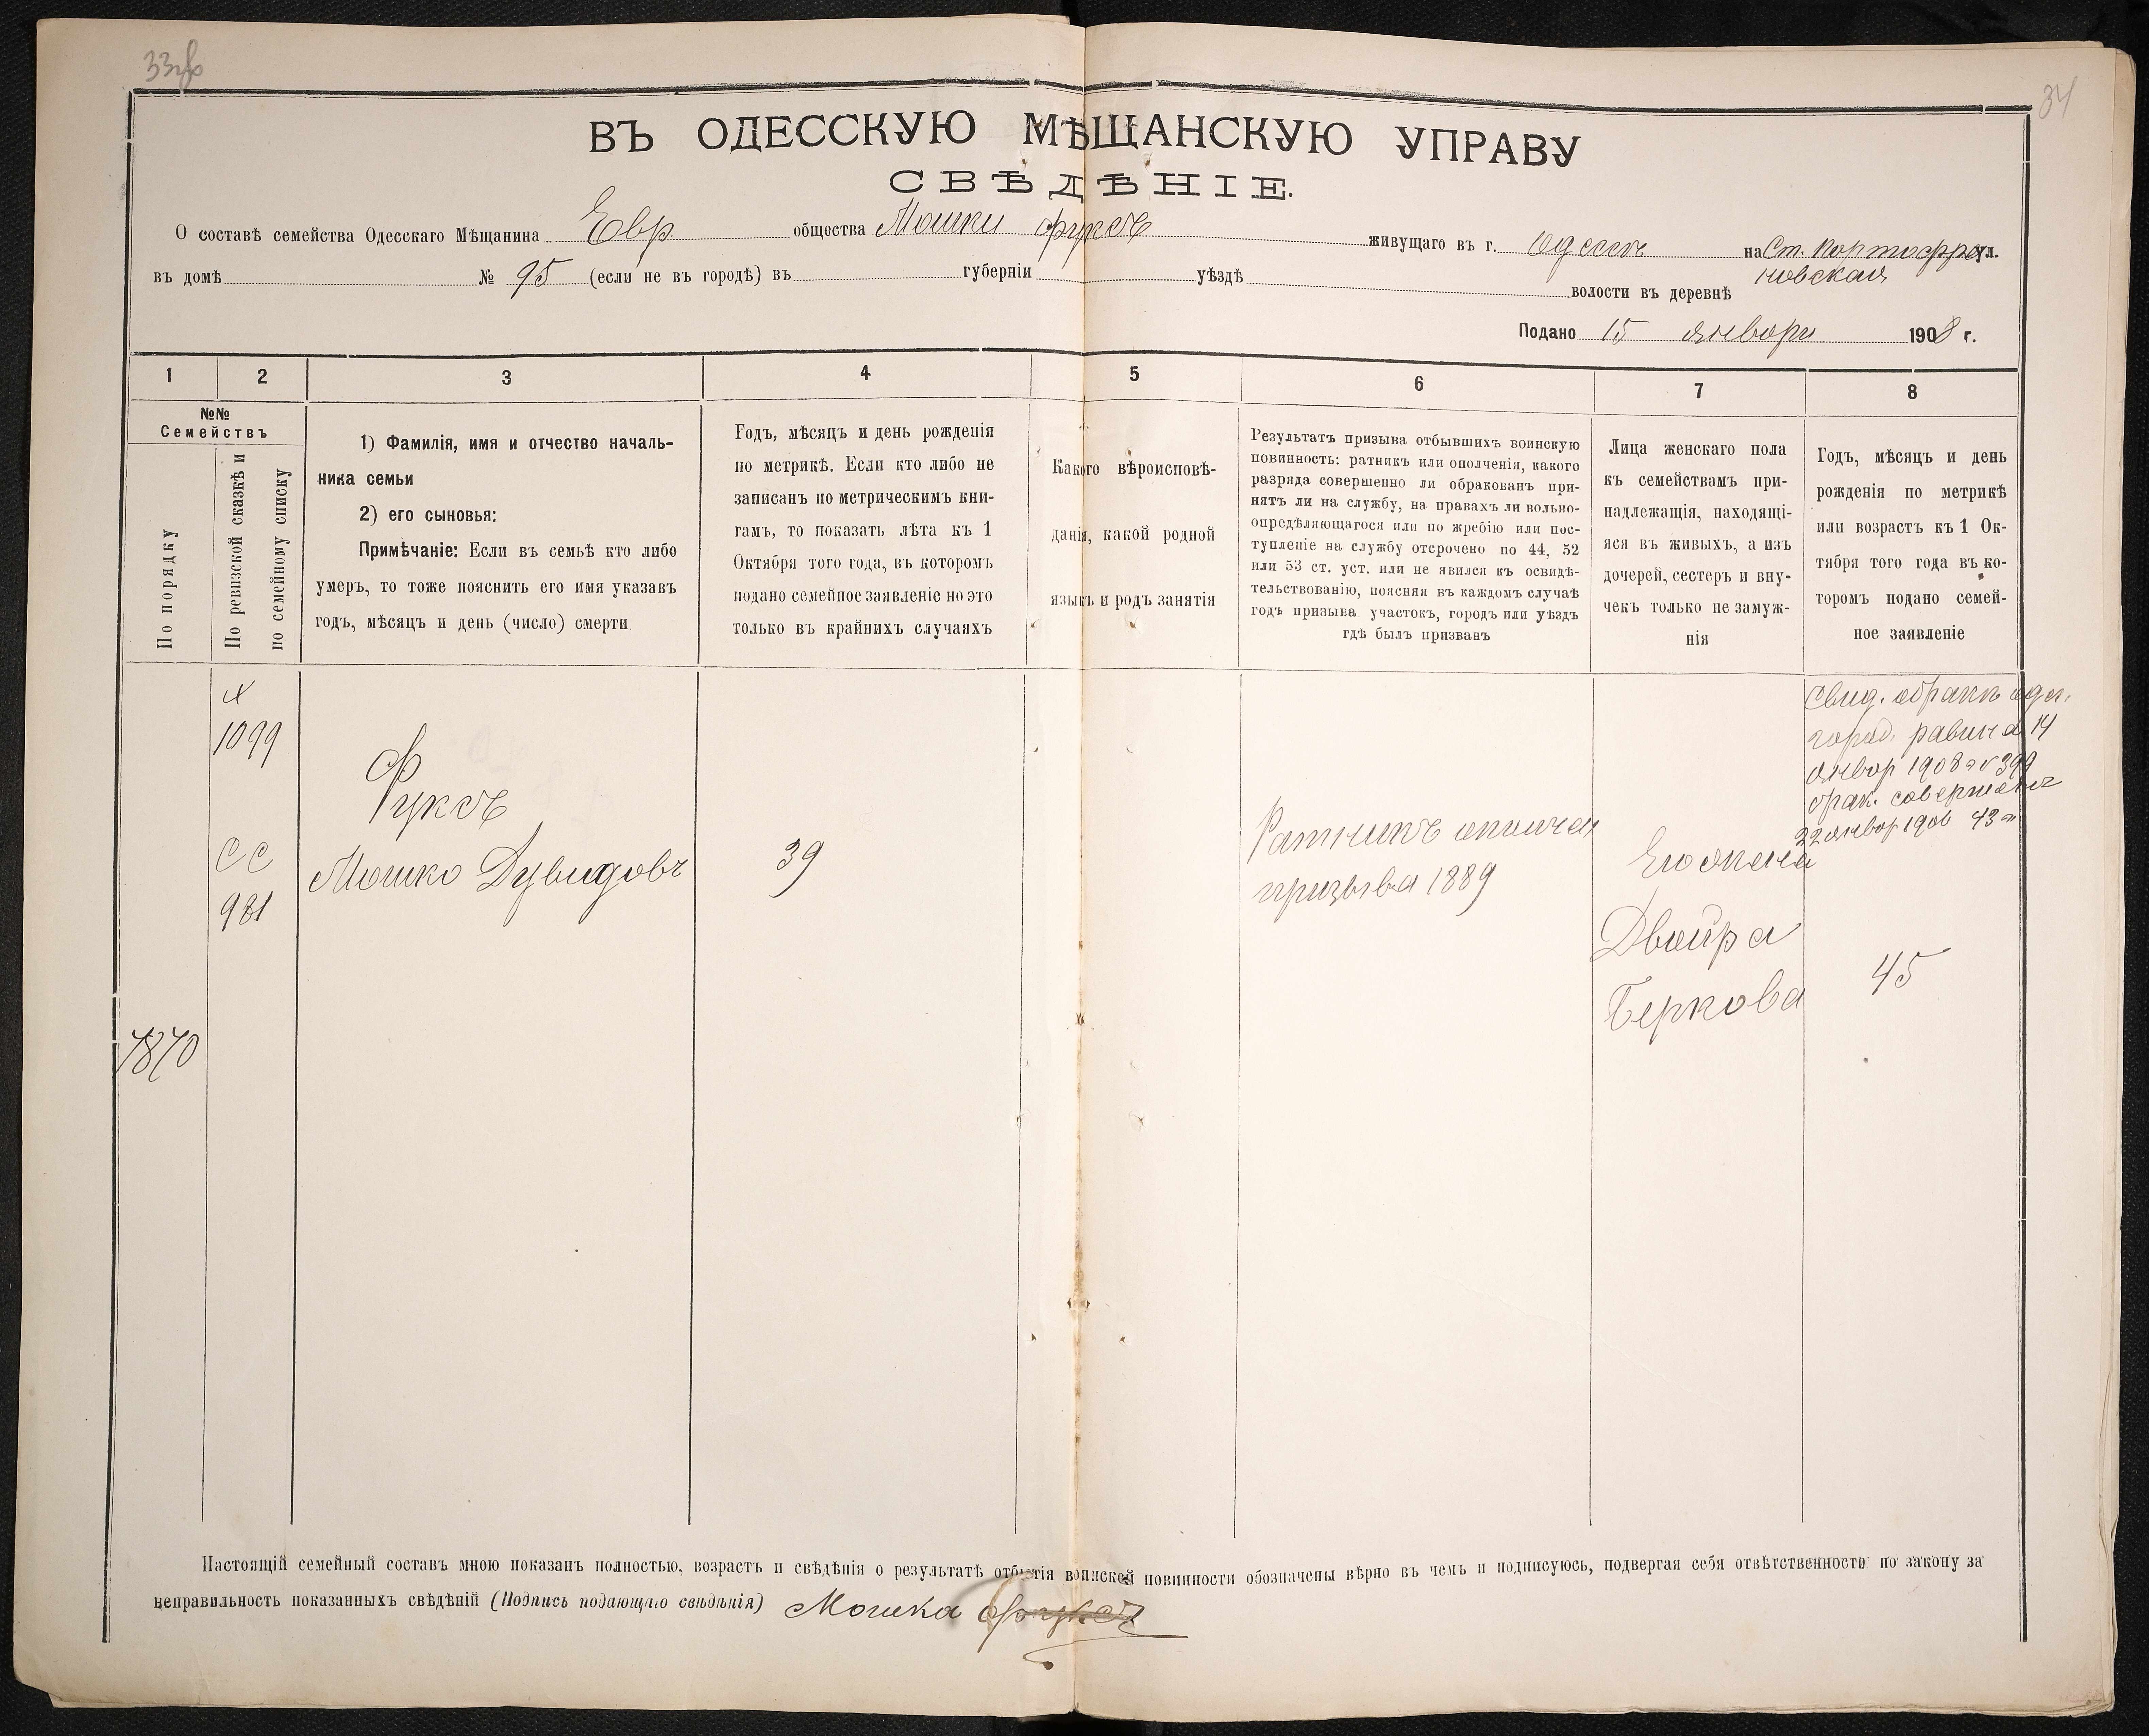 33об
34
ВЪ ОДЕССКУЮ МѢЩАНСКУЮ УПРАВУ
СВѢДѢНІЕ.
О составѣ семейства Одесскаго Мѣщанина Евр общества Мошки Фуксъ живущаго въ г. Одессѣ на Ст. Портофра ул.
новская
въ домѣ № 95 (если не въ городѣ) въ губерніи уѣздѣ волости въ деревнѣ
Подано 15 января 1908 г.
1 2 3 4 5 6 7 8
№№
Семействъ
По порядку
По ревизской сказкѣ и
по семейному списку
1) Фамилія, имя и отчество началь-
ника семьи
2) его сыновья:
Примѣчаніе: Если въ семьѣ кто либо
умеръ, то тоже пояснить его имя указавъ
годъ, мѣсяцъ и день (число) смерти
Годъ, мѣсяцъ и день рожденія
по метрикѣ. Если кто либо не
записанъ по метрическимъ кни-
гамъ, то показать лѣта къ 1
Октября того года, въ которомъ
подано семейное заявленіе но это
только въ крайнихъ случаяхъ
Какого вѣроисповѣ-
данія, какой родной
языкъ и родъ занятія
Результатъ призыва отбывшихъ воинскую
повинность: ратникъ или ополченія, какого
разряда совершенно ли обракованъ при-
нятъ ли на службу, на правахъ ли вольно-
опредѣляющагося или по жребію или пос-
тупленіе на службу отсрочено по 44, 52
или 53 ст. уст. или не явился къ освидѣ-
тельствованію, поясняя въ каждомъ случаѣ
годъ призыва участокъ, городъ или уѣздъ
гдѣ былъ призванъ
Лица женскаго пола
къ семействамъ при-
надлежащія, находящі-
яся въ живыхъ, а изъ
дочерей, сестеръ и вну-
чекъ только не замуж-
нія
Годъ, мѣсяцъ и день
рожденія по метрикѣ
или возрастъ къ 1 Ок-
тября того года въ ко-
торомъ подано семей-
ное заявленіе
1099
СС
981
1870
Фуксъ
Мошко Дувидовъ
39
Ратникъ ополчен
призыва 1889
Его жена
Двойра
Беркова
Свид. о бракѣ одес.
город. равина 14
январ 1908 г № 399
брак. совершенъ
22 январ 190
45
Настоящій семейный составъ мною показанъ полностью, возрастъ и свѣдѣнія о результатѣ отбытія воинской повинности обозначены вѣрно въ чемъ и подписуюсь, подвергая себя отвѣтственности по закону за
неправильность показанныхъ свѣдѣній (Подпись подающаго свѣдѣнія) Мошка Фуксъ